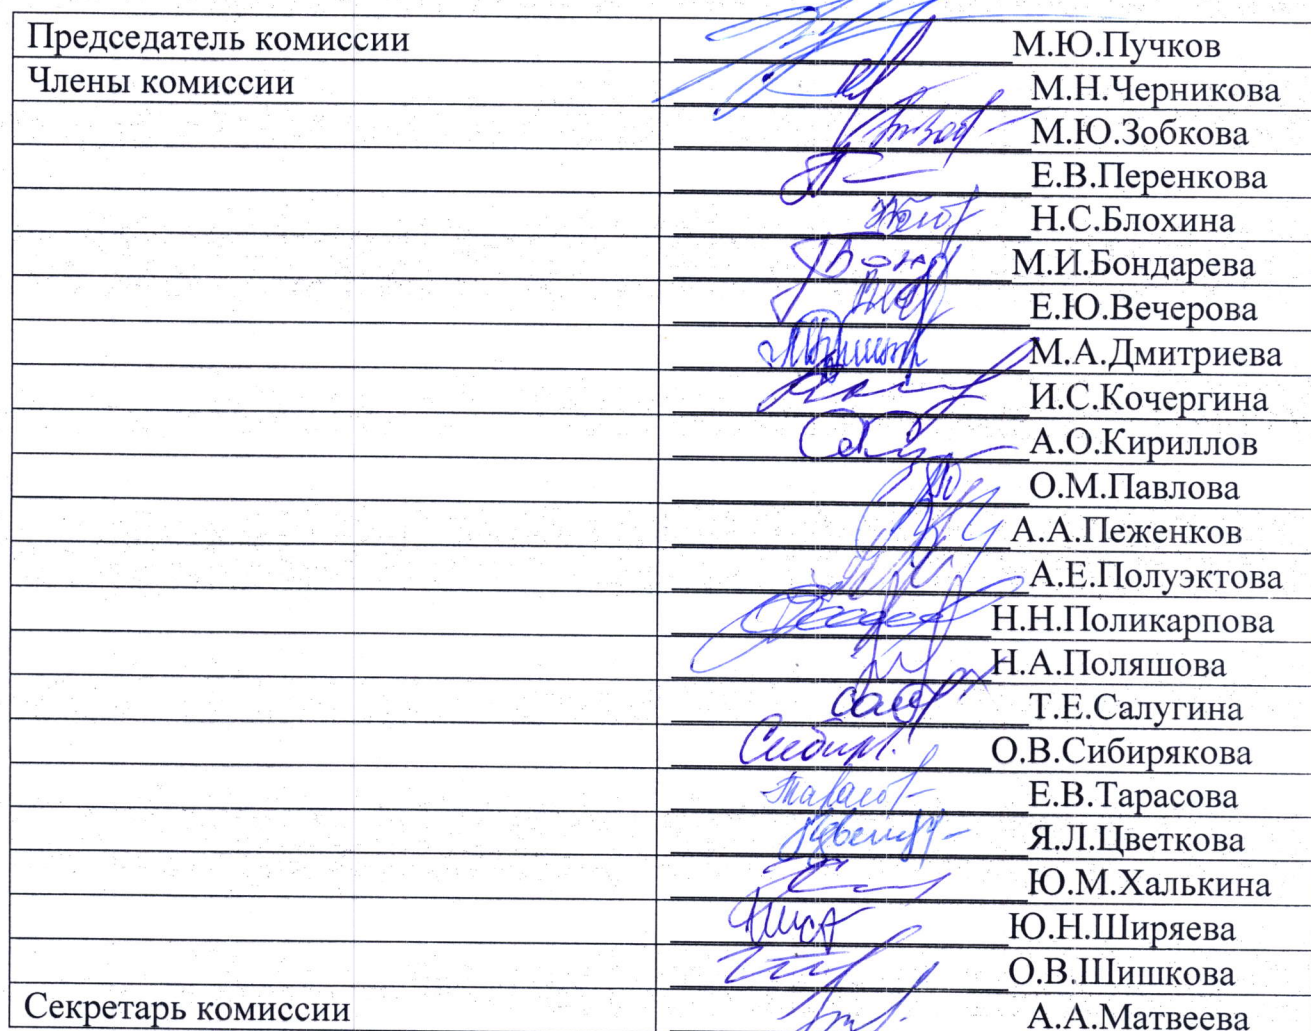 Председатель комиссии М.Ю.Пучков
Члены комиссии М.Н.Черникова
М.Ю.Зобкова
Е.В.Перенкова
Н.С.Блохина
М.И.Бондарева
Е.Ю.Вечерова
М.А.Дмитриева
И.С.Кочергина
А.О.Кириллов
О.М.Павлова
А.А.Пеженков
А.Е.Полуэктова
Н.Н.Поликарпова
Н.А.Поляшова
Т.Е.Салугина
О.В.Сибирякова
Е.В.Тарасова
Я.Л.Цветкова
Ю.М.Халькина
Ю.Н.Ширяева
О.В.Шишкова
Секретарь комиссии А.А.Матвеева